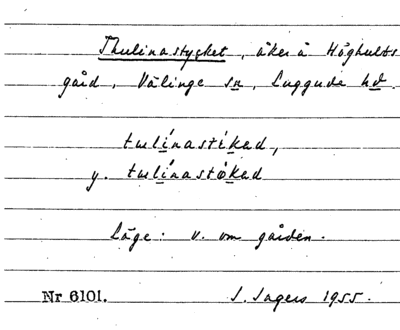 Thulinastycket, åker å Höghults
gård, Välinge sn, Luggude hd.
tulinastékad,
y. tulinastøkad
Läge: v. om gården.
Nr 6101. I. Ingers 1955.